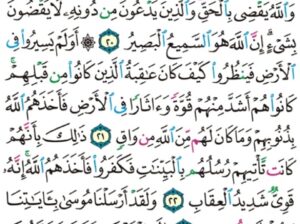 وَٱللَّهُ يَقۡضِي بِٱلۡحَقِّۖ وَٱلَّذِينَ يَدۡعُونَ مِن دُونِهِۦ لَا يَقۡضُونَ
بِشَيۡءٍۗ إِنَّ ٱللَّهَ هُوَ ٱلسَّمِيعُ ٱلۡبَصِيرُ ٢٠ ۞ أَوَلَمۡ يَسِيرُواْ فِي
ٱلۡأَرۡضِ فَيَنظُرُواْ كَيۡفَ كَانَ عَٰقِبَةُ ٱلَّذِينَ كَانُواْ مِن قَبۡلِهِمۡۚ
كَانُواْ هُمۡ أَشَدَّ مِنۡهُمۡ قُوَّةٗ وَءَاثَارٗا فِي ٱلۡأَرۡضِ فَأَخَذَهُمُ ٱللَّهُ
بِذُنُوبِهِمۡ وَمَا كَانَ لَهُم مِّنَ ٱللَّهِ مِن وَاقٖ ٢١ ذَٰلِكَ بِأَنَّهُمۡ
كَانَت تَّأۡتِيهِمۡ رُسُلُهُم بِٱلۡبَيِّنَٰتِ فَكَفَرُواْ فَأَخَذَهُمُ ٱللَّهُۚ إِنَّهُۥ
قَوِيّٞ شَدِيدُ ٱلۡعِقَابِ ٢٢ وَلَقَدۡ أَرۡسَلۡنَا مُوسَىٰ بِـَٔايَٰتِنَا